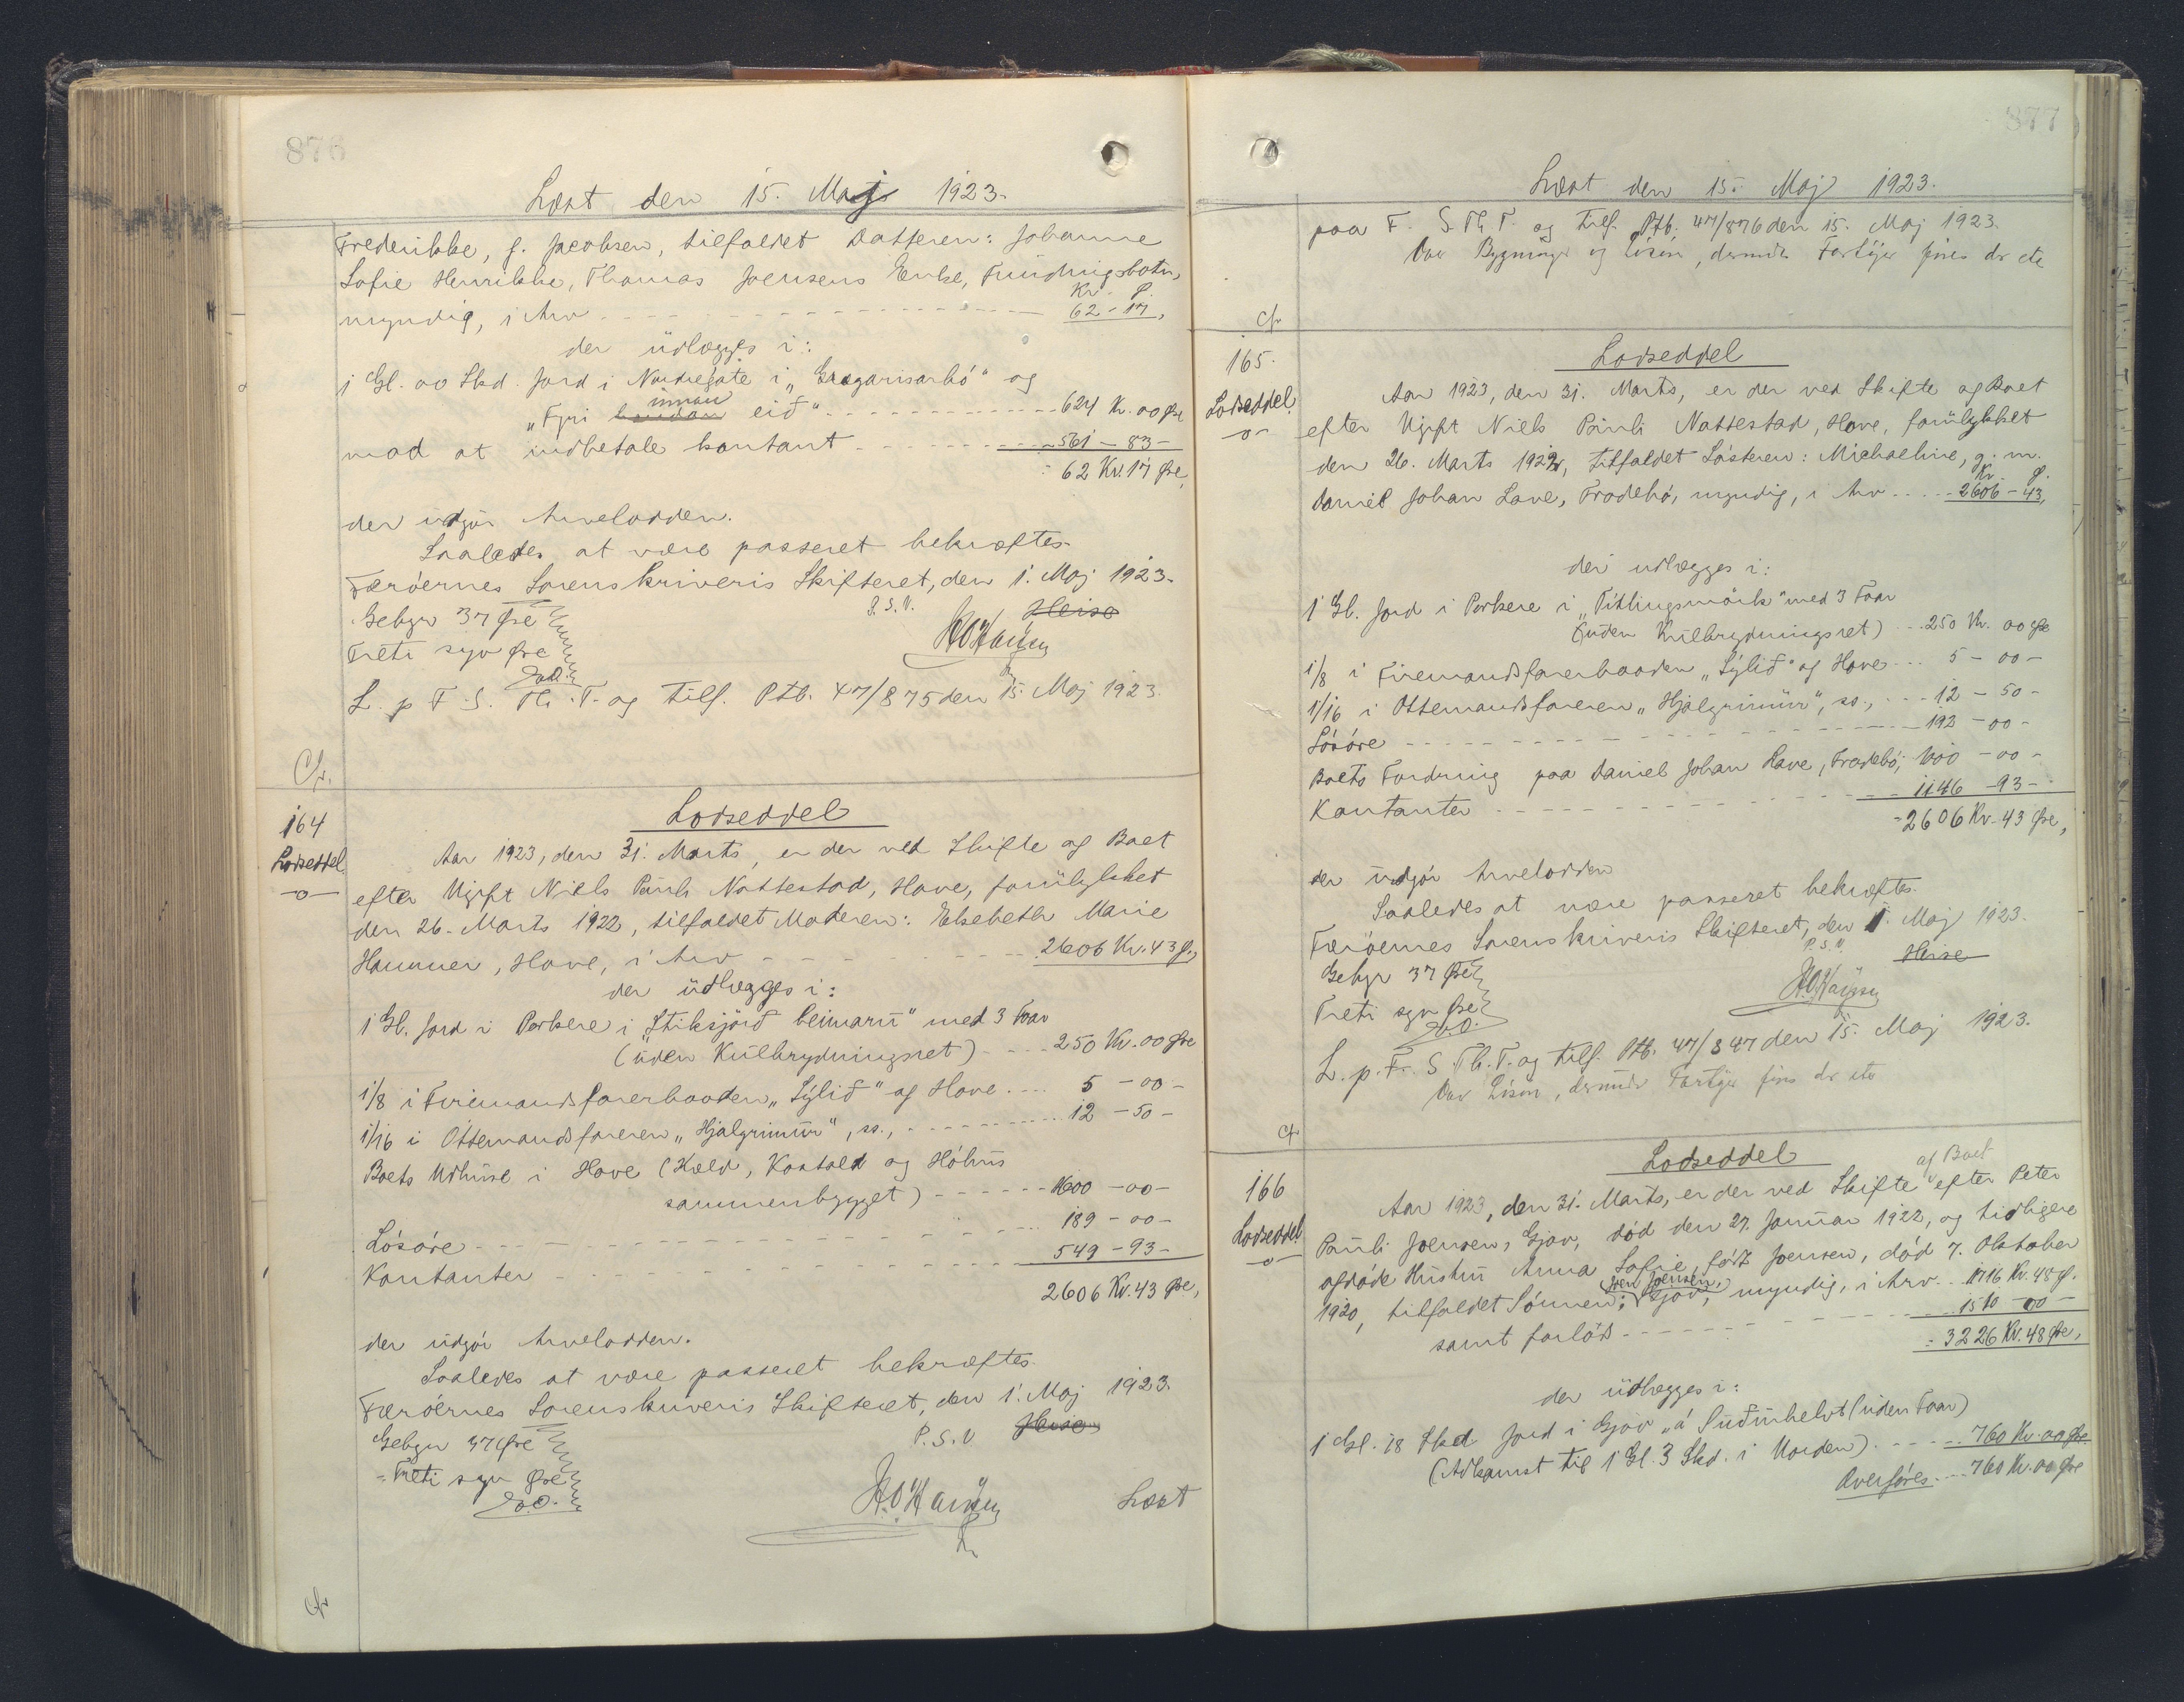 876
Læst den 15. Maj 1923.
Frederikke, f. Jacobsen, tilfaldet Datteren: Johanne
Sofie Henrikke, Thomas Joensens Enke, Funningsbotn,
myndig, i Arv - - - Kr. Ø. 62 - 17,
der udlægges i:
1 Gl. 00 Skd. Jord i Nordregøte i „Gregarisarbö“ og
„Fyri innan eið“ - - - 624 Kr. 00 Øre
mod at indbetale kontant - - - 561 - 83 -
= 62 Kr. 17 Øre,
der udgör Arvelodden.
Saaledes at være passeret bekræftes.
Færöernes Sorenskriveris Skifteret, den 1. Maj 1923.
P. S. V. Heise
Gebyr 37 Øre
Treti syv Øre
HOHansen
L. p. F. S. Th. T. og Tilf. Ptb. 47/875 den 15. Maj 1923.
Cfr.
164
Lodseddel
-o-
Lodseddel
Aar 1923, den 31. Marts, er der ved Skifte af Boet
efter Ugift Niels Pauli Nattestad, Hove, forulykket
den 26. Marts 1922, tilfaldet Moderen: Elsebeth Marie
Hammer, Hove, i Arv - - - 2606 Kr. 43 Ø.,
der udlægges i:
1 Gl. Jord i Porkere i „Stiksjörð heimaru“ med 3 Faar
(uden Kulbrydningsret) - - - 250 Kr. 00 Øre
1/8 i Firemandsfarerbaaden „Sýlið“ af Hove - - - 5 - 00 -
1/16 i Ottemandsfareren „Hjalgrimur“, ss., - - - 12 - 50 -
Boets Udhuse i Hove (Kæld, Kostald og Höhus
sammenbygget) - - - 1600 - 00 -
Lösöre - - - 189 - 00 -
Kontanter - - - 549 - 93 -
2606 Kr. 43 Øre,
der udgör Arvelodden.
Saaledes at være passeret bekræftes.
Færöernes Sorenskriveris Skifteret, den 1. Maj 1923.
P. S. V. Heise
Gebyr 37 Øre
= Treti syv Øre
HOHansen
Læst
Cfr
877
Læst den 15. Maj 1923.
paa F. S. Th. T. og Tilf. Ptb. 47/876 den 15. Maj 1923.
Bygninger og Lösöre, derunder Fartöjer
Cfr
165.
Lodseddel
-o-
Lodseddel
Aar 1923, den 31. Marts, er der ved Skifte af Boet
efter Ugift Niels Pauli Nattestad, Hove, forulykket
den 26. Marts 1922, tilfaldet Söstern: Michaeline, g. m.
Daniel Johan Lave, Frodebö, myndig, i Arv - - - Kr. Ø. 2606 - 43,
der udlægges i:
1 Gl. Jord i Porkere i „Titlingsmörk“ med 3 Faar
(uden Kulbrydningsret) - - - 250 Kr. 00 Øre
1/8 i Firemandsfarerbaaden „Sýlið“ af Hove - - - 5 - 00 -
1/16 i Ottemandsfareren „Hjalgrimur“, ss., - - - 12 - 50 -
Lösöre - - - 192 - 00 -
Boets Fordring paa Daniel Johan Lave, Frodebö, 1000 - 00 -
Kontanter - - - 1146 - 93 -
= 2606 Kr. 43 Øre,
der udgör Arvelodden
Saaledes at være passeret bekræftes.
Færöernes Sorenskriveris Skifteret, den 1. Maj 1923.
P. S. V. Heise
Gebyr 37 Øre
Treti syv Øre
HOHansen
L. p. F. S. Th. T. og Tilf. Ptb. 47/847 den 15. Maj 1923.
Lösöre, derunder Fartöjer
Cfr
166
Lodseddel
-o-
Lodseddel
Aar 1923, den 31. Marts, er der ved Skifte af Boet efter Peter
Pauli Joensen, Gjov, död den 27. Januar 1922, og tidligere
afdöde Hustru Anna Sofie, født Joensen, död 7. Oktober
1920, tilfaldet Sönnen: Joensen, Gjov, myndig, i Arv - - 1716 Kr. 48 Ø.
samt forlöds - - - 1510 - 00 -
= 3226 Kr. 48 Øre,
der udlægges i:
1 Gl. 18 Skd Jord i Gjov „á Suðurhelvt (uden Faar)
(Adkomst til 1 Gl. 3 Skd. i Norden) - - - 760 Kr. 00 Øre
Overföres - - - 760 Kr. 00 Øre